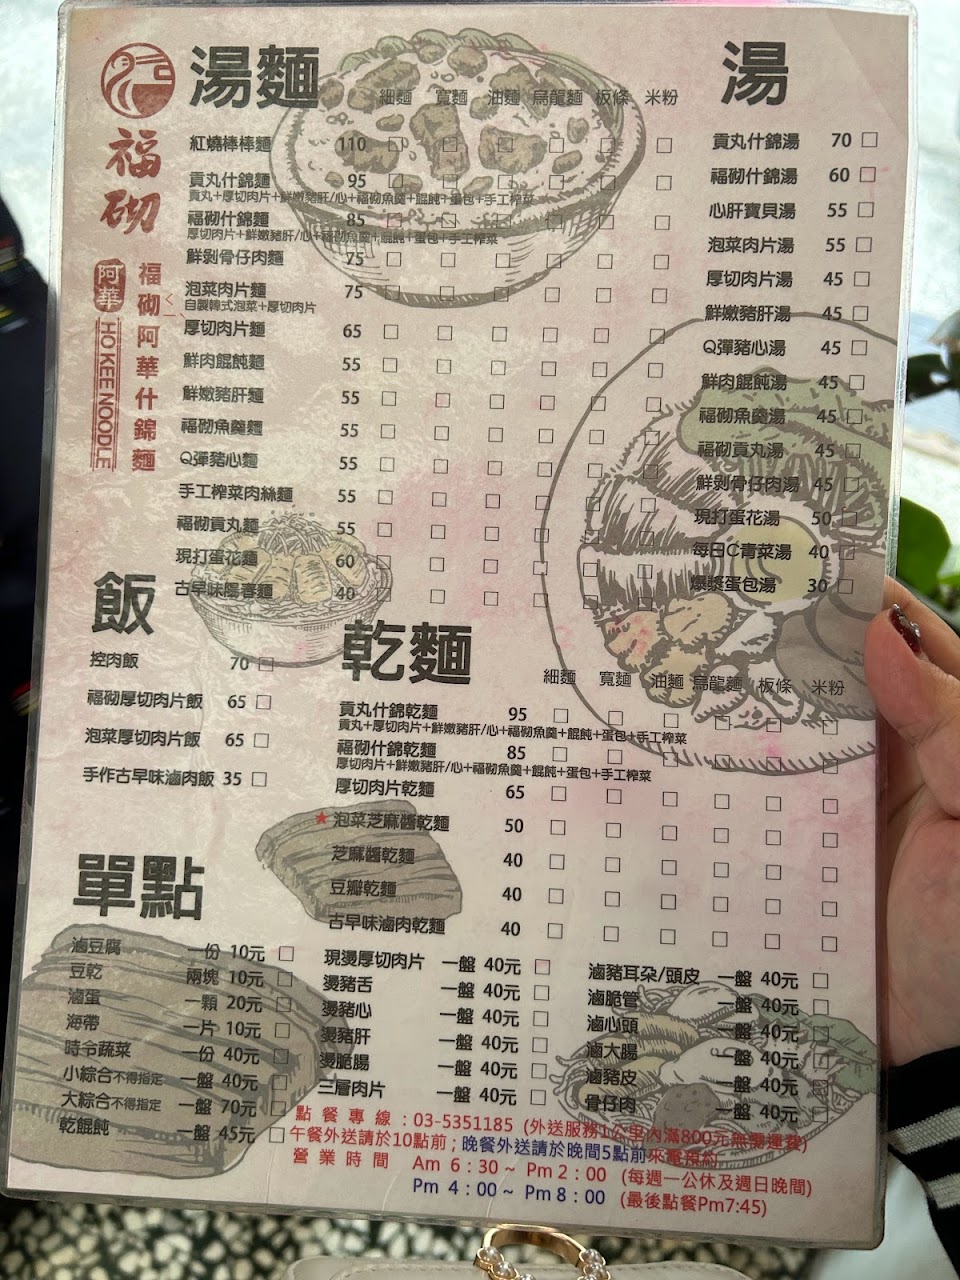 福砌
阿華
HO KEE NOODLE
福砌阿華什錦麵
湯麵
細麵 寬麵 油麵 烏龍麵 板條 米粉
紅燒棒棒麵 110 □ □ □ □ □ □
貢丸什錦麵 95 □ □ □ □ □ □
貢丸+厚切肉片+鮮嫩豬肝/心+福砌魚羹+餛飩+蛋包+手工榨菜
福砌什錦麵 85 □ □ □ □ □ □
厚切肉片+鮮嫩豬肝/心+福砌魚羹+餛飩+蛋包+手工榨菜
鮮剝骨仔肉麵 75 □ □ □ □ □ □
泡菜肉片麵 75 □ □ □ □ □ □
自製韓式泡菜+厚切肉片
厚切肉片麵 65 □ □ □ □ □ □
鮮肉餛飩麵 55 □ □ □ □ □ □
鮮嫩豬肝麵 55 □ □ □ □ □ □
福砌魚羹麵 55 □ □ □ □ □ □
Q彈豬心麵 55 □ □ □ □ □ □
手工榨菜肉絲麵 55 □ □ □ □ □ □
福砌貢丸麵 55 □ □ □ □ □ □
現打蛋花麵 60 □ □ □ □ □ □
古早味陽春麵 40 □ □ □ □ □ □
湯
貢丸什錦湯 70 □
福砌什錦湯 60 □
心肝寶貝湯 55 □
泡菜肉片湯 55 □
厚切肉片湯 45 □
鮮嫩豬肝湯 45 □
Q彈豬心湯 45 □
鮮肉餛飩湯 45 □
福砌魚羹湯 45 □
福砌貢丸湯 45 □
鮮剝骨仔肉湯 45 □
現打蛋花湯 50 □
每日C青菜湯 40 □
爆漿蛋包湯 30 □
飯
控肉飯 70 □
福砌厚切肉片飯 65 □
泡菜厚切肉片飯 65 □
手作古早味滷肉飯 35 □
乾麵
細麵 寬麵 油麵 烏龍麵 板條 米粉
貢丸什錦乾麵 95 □ □ □ □ □ □
貢丸+厚切肉片+鮮嫩豬肝/心+福砌魚羹+餛飩+蛋包+手工榨菜
福砌什錦乾麵 85 □ □ □ □ □ □
厚切肉片+鮮嫩豬肝/心+福砌魚羹+餛飩+蛋包+手工榨菜
厚切肉片乾麵 65 □ □ □ □ □ □
★泡菜芝麻醬乾麵 50 □ □ □ □ □ □
芝麻醬乾麵 40 □ □ □ □ □ □
豆瓣乾麵 40 □ □ □ □ □ □
古早味滷肉乾麵 40 □ □ □ □ □ □
單點
滷豆腐 一份 10元 □
豆乾 兩塊 10元 □
滷蛋 一顆 20元 □
海帶 一片 10元 □
時令蔬菜 一份 40元 □
小綜合不得指定 一盤 40元 □
大綜合不得指定 一盤 70元 □
乾餛飩 一盤 45元 □
現燙厚切肉片 一盤 40元 □
燙豬舌 一盤 40元 □
燙豬心 一盤 40元 □
燙豬肝 一盤 40元 □
燙脆腸 一盤 40元 □
三層肉片 一盤 40元 □
滷豬耳朵/頭皮 一盤 40元 □
滷脆管 一盤 40元 □
滷心頭 一盤 40元 □
滷大腸 一盤 40元 □
滷豬皮 一盤 40元 □
骨仔肉 一盤 40元 □
點餐專線:03-5351185 (外送服務1公里內滿800元無需運費)
午餐外送請於10點前;晚餐外送請於晚間5點前來電預約
營業時間 Am 6:30~ Pm 2:00 (每週一公休及週日晚間)
Pm 4:00~ Pm 8:00 (最後點餐Pm7:45)